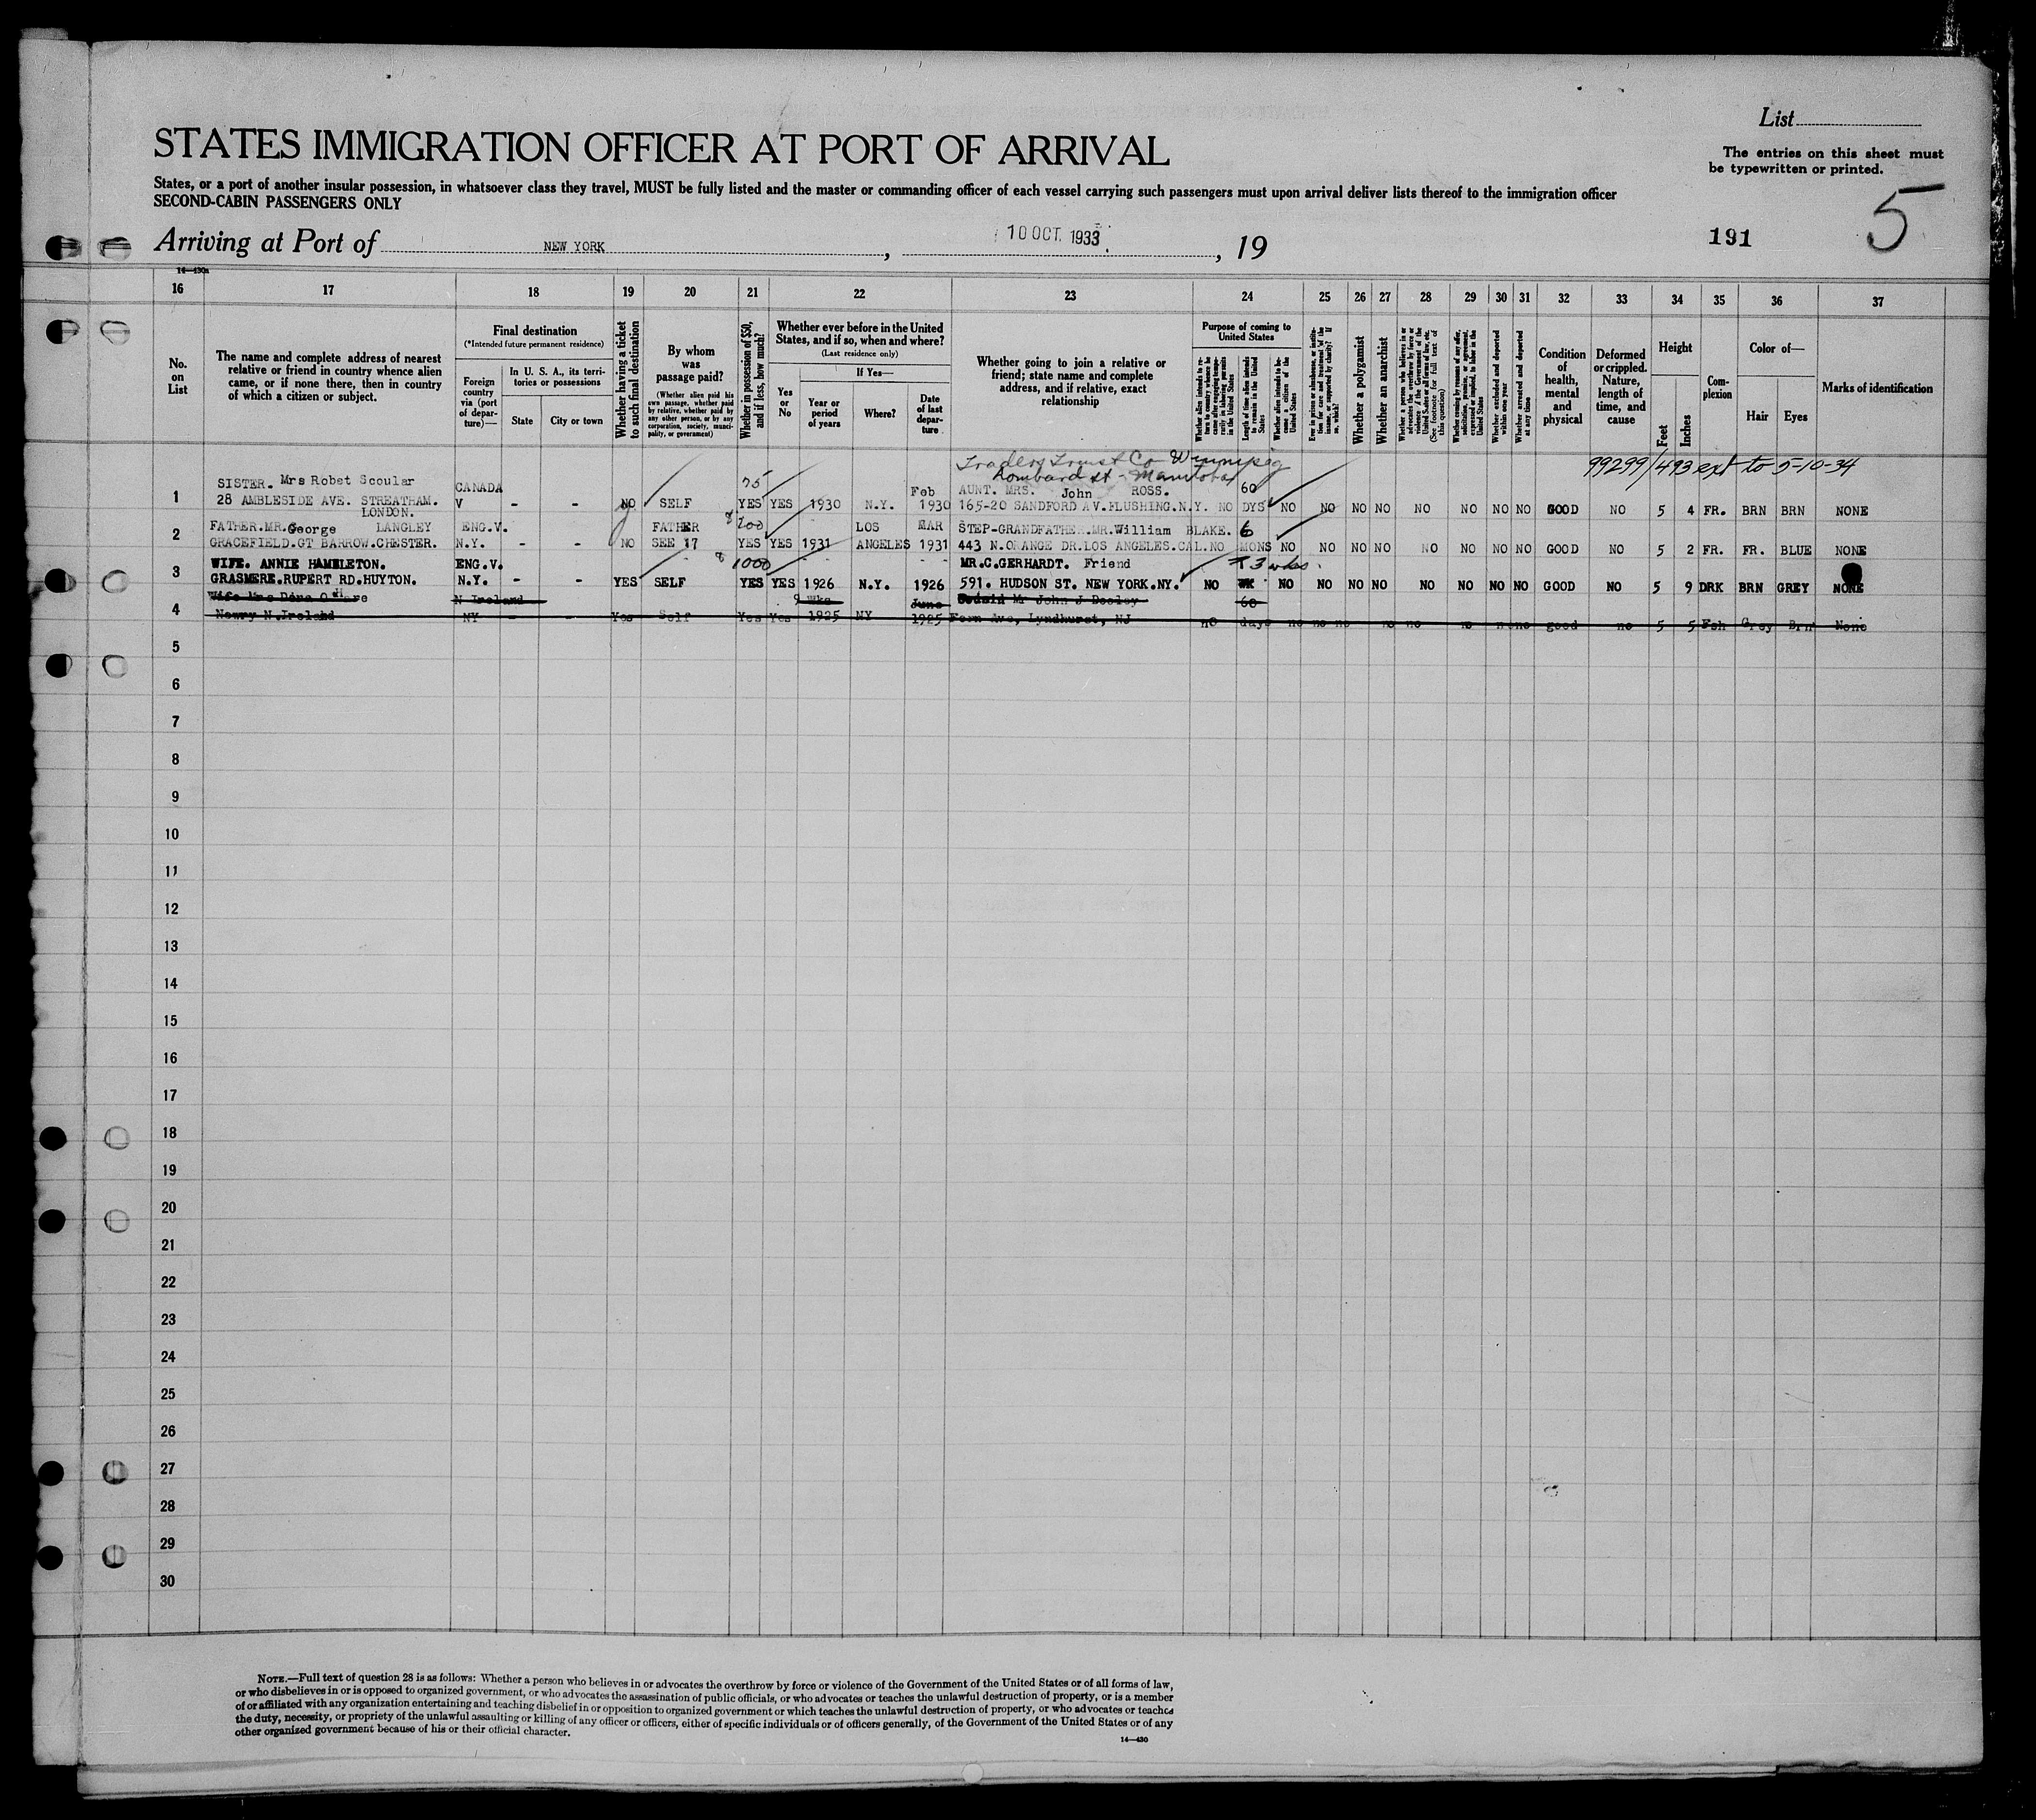 List
STATES IMMIGRATION OFFICER AT PORT OF ARRIVAL
The entries on this sheet must
be typewritten or printed.
States, or a port of another insular possession, in whatsoever class they travel, MUST be fully listed and the master or commanding officer of each vessel carrying such passengers must upon arrival deliver lists thereof to the immigration officer
SECOND-CABIN PASSENGERS ONLY
5
Arriving at Port of NEW YORK, 10 OCT. 1933, 19
191
14—430a
16 17 18 19 20 21 22 23 24 25 26 27 28 29 30 31 32 33 34 35 36 37
No. on List
The name and complete address of nearest relative or friend in country whence alien came, or if none there, then in country of which a citizen or subject.
Final destination
(*Intended future permanent residence)
Foreign country via (port of departure)—
In U. S. A., its territories or possessions
State
City or town
Whether having a ticket to such final destination
By whom was passage paid?
(Whether alien paid his own passage, whether paid by relative, whether paid by any other person, or by any corporation, society, municipality, or government)
Whether in possession of $50, and if less, how much?
Whether ever before in the United States, and if so, when and where?
(Last residence only)
Yes or No
If Yes—
Year or period of years
Where?
Date of last departure
Whether going to join a relative or friend; state name and complete address, and if relative, exact relationship
Purpose of coming to United States
Length of time alien intends to remain in the United States
Whether alien intends to become a citizen of the United States
Whether a polygamist
Whether an anarchist
(See footnote for full text of this question)
Whether excluded and deported within one year
Whether arrested and deported at any time
Condition of health, mental and physical
Deformed or crippled. Nature, length of time, and cause
Height
Feet
Inches
Complexion
Color of—
Hair
Eyes
Marks of identification
Traders Trust Co Winnipeg
Lombard st - Manitoba
99299/493 ext to 5-10-34
SISTER. Mrs Robet Scoular CANADA 75 Feb AUNT. MRS. John ROSS. 60
1 28 AMBLESIDE AVE. STREATHAM. V - - NO SELF YES YES 1930 N.Y. 1930 165-20 SANDFORD AV.FLUSHING.N.Y. NO DYS NO NO NO NO NO NO NO NO GOOD NO 5 4 FR. BRN BRN NONE
LONDON.
FATHER.MR.George LANGLEY ENG.V. FATHER 200 LOS MAR STEP-GRANDFATHER.MR.William BLAKE. 6
2 GRACEFIELD.GT BARROW.CHESTER. N.Y. - - NO SEE 17 YES YES 1931 ANGELES 1931 443 N.ORANGE DR.LOS ANGELES.CAL.NO MONS NO NO NO NO NO NO NO NO GOOD NO 5 2 FR. FR. BLUE NONE
WIFE. ANNIE HAMBLETON. ENG.V. 1000 MR.C.GERHARDT. Friend 3 wks.
3 GRASMERE.RUPERT RD.HUYTON. N.Y. - - YES SELF YES YES 1926 N.Y. 1926 591. HUDSON ST. NEW YORK.NY. NO NO NO NO NO NO NO NO NO GOOD NO 5 9 DRK BRN GREY NONE
Wife Mrs O'Hare N Ireland 9 Wks June Mr John J 60
4 Newry N.Ireland NY - - Yes Self Yes Yes 1925 NY 1925 Fern Ave, Lyndhurst, NJ no days no no no no no no no no good no 5 5 Fsh Grey Brn None
5
6
7
8
9
10
11
12
13
14
15
16
17
18
19
20
21
22
23
24
25
26
27
28
29
30
NOTE.—Full text of question 28 is as follows: Whether a person who believes in or advocates the overthrow by force or violence of the Government of the United States or of all forms of law,
or who disbelieves in or is opposed to organized government, or who advocates the assassination of public officials, or who advocates or teaches the unlawful destruction of property, or is a member
of or affiliated with any organization entertaining and teaching disbelief in or opposition to organized government or which teaches the unlawful destruction of property, or who advocates or teaches
the duty, necessity, or propriety of the unlawful assaulting or killing of any officer or officers, either of specific individuals or of officers generally, of the Government of the United States or of any
other organized government because of his or their official character.
14—430